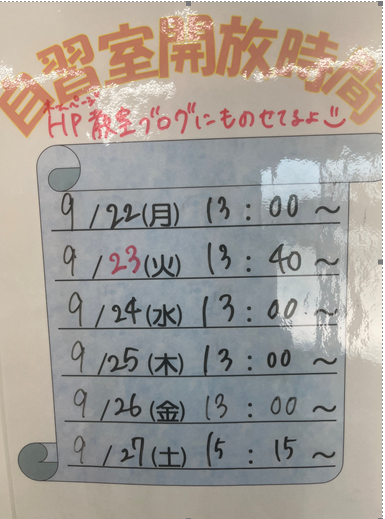 自習室開放時間
ホームページ
HP 教室ブログにものせてるよ
9/22(月) 13:00~
9/23(火) 13:40~
9/24(水) 13:00~
9/25(木) 13:00~
9/26(金) 13:00~
9/27(土) 15:15~